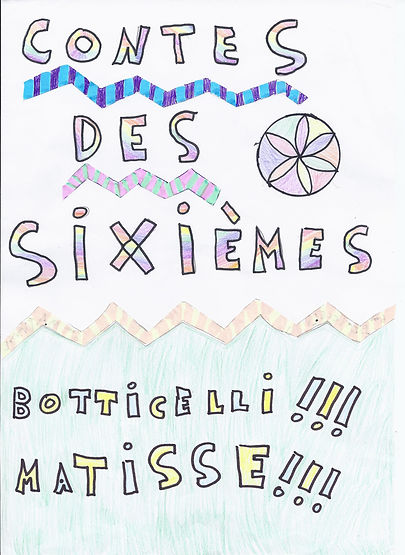 CONTES
DES
SiXiÈMES
BOTTiCELLi !!!
MATiSSE !!!